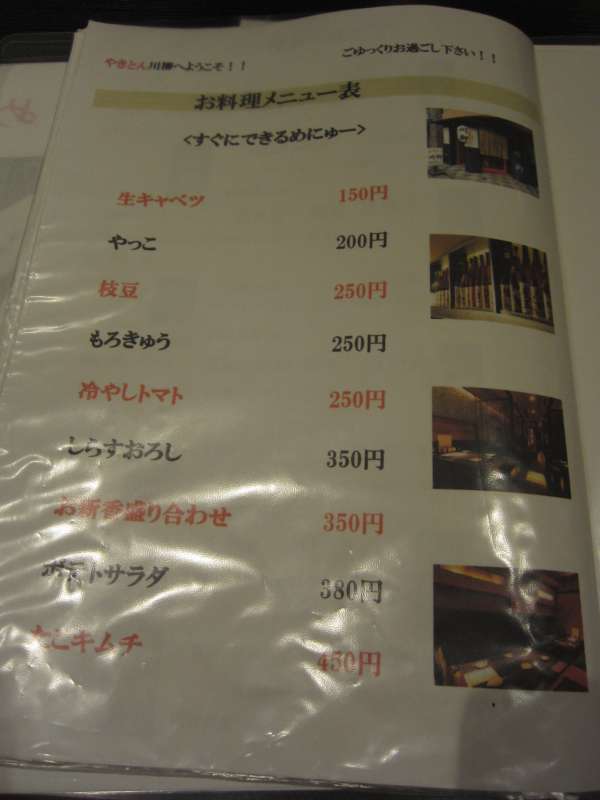 やきとん川柳へようこそ！！
ごゆっくりお過ごし下さい！！
お料理メニュー表
<すぐにできるめにゅー>
生キャベツ 150円
やっこ 200円
枝豆 250円
もろきゅう 250円
冷やしトマト 250円
しらすおろし 350円
お新香盛り合わせ 350円
ポテトサラダ 380円
たこキムチ 450円